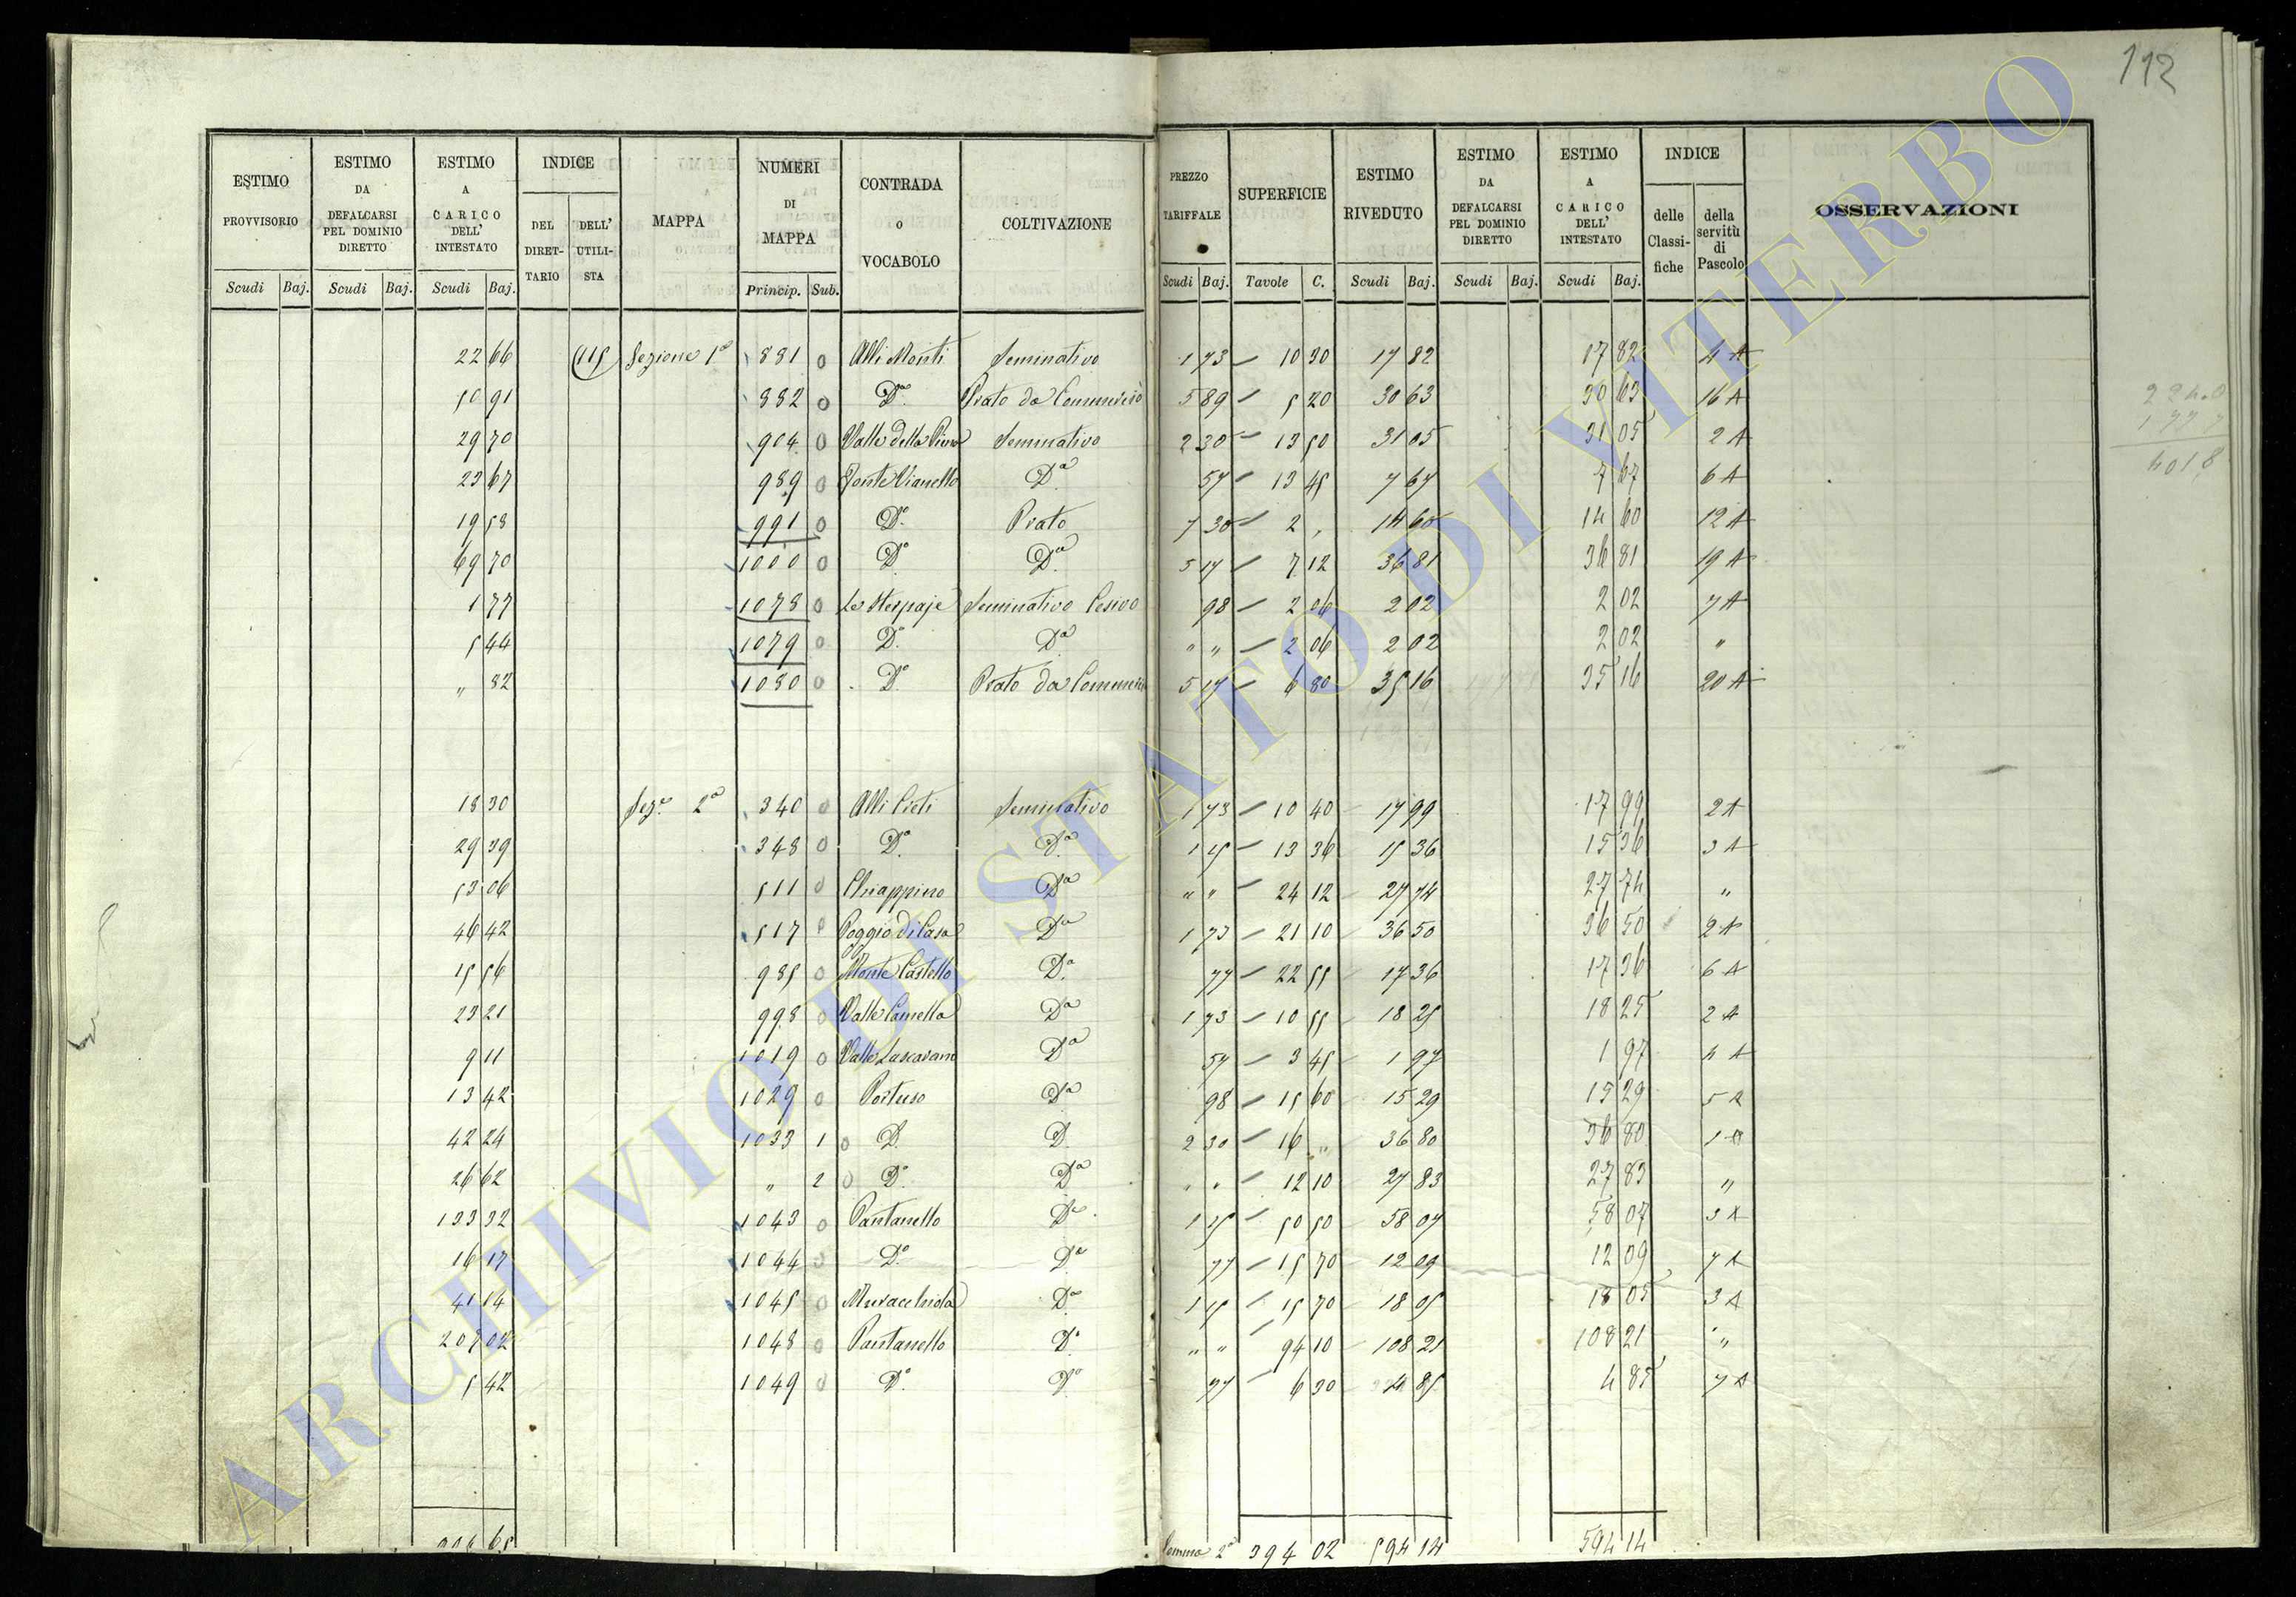 112
ESTIMO PROVVISORIO Scudi Baj. ESTIMO DA DEFALCARSI PEL DOMINIO DIRETTO Scudi Baj. ESTIMO A CARICO DELL' INTESTATO Scudi Baj. INDICE DEL DIRETTARIO DELL' UTILISTA MAPPA NUMERI DI MAPPA Princip. Sub. CONTRADA o VOCABOLO COLTIVAZIONE PREZZO TARIFFALE Scudi Baj. SUPERFICIE Tavole C. ESTIMO RIVEDUTO Scudi Baj. ESTIMO DA DEFALCARSI PEL DOMINIO DIRETTO Scudi Baj. ESTIMO A CARICO DELL' INTESTATO Scudi Baj. INDICE delle Classifiche della servitù di Pascolo OSSERVAZIONI
22 66 115 Sezione 1ª 881 0 Alli Monti Seminativo 1 73 — 10 30 17 82 17 82 4 A
50 91 882 0 Dº Prato da Commercio 5 89 — 5 20 30 63 30 63 16 A
29 70 904 0 Valle della Seminativo 2 30 — 13 50 31 05 31 05 2 A
23 67 989 0 Fonte Vianello Dº 57 — 13 45 7 67 7 67 6 A
19 58 991 0 Dº Prato 7 30 — 2 , 14 60 14 60 12 A
69 70 1000 0 Dº Dº 5 17 — 7 12 36 81 36 81 19 A
1 77 1078 0 Le Sterpaje Seminativo 98 — 2 06 2 02 2 02 7 A
5 44 1079 0 Dº Dº " " — 2 06 2 02 2 02 "
" 82 1080 0 Dº Prato da Commercio 5 17 — 6 80 35 16 35 16 20 A
18 30 Sezº 2ª 340 0 Alli Preti Seminativo 1 73 — 10 40 17 99 17 99 2 A
29 39 348 0 Dº Dº 1 15 — 13 36 15 36 15 36 3 A
53 06 511 0 Chiappino Dº " " — 24 12 27 74 27 74 "
46 42 517 0 Poggio di Casa Dº 1 73 — 21 10 36 50 36 50 2 A
15 56 985 0 Monte Castello Dº 77 — 22 55 17 36 17 36 6 A
23 21 998 0 Valle Camella Dº 1 73 — 10 55 18 25 18 25 2 A
9 11 1019 0 Valle Lascarano Dº 57 — 3 45 1 97 1 97 4 A
13 42 1029 0 Portuso Dº 98 — 15 60 15 29 15 29 5 A
42 24 1033 1 0 D. D. 2 30 — 16 " 36 80 36 80 1 A
26 62 " 2 0 Dº Dº " " — 12 10 27 83 27 83 "
133 32 1043 0 Pantanello Dº 1 15 — 50 50 58 07 58 07 3 A
16 17 1044 0 Dº Dº 77 — 15 70 12 09 12 09 7 A
41 14 1045 0 Muracchiola Dº 1 15 — 15 70 18 05 18 05 3 A
207 02 1048 0 Pantanello Dº " " 94 10 108 21 108 21 "
5 42 1049 0 Dº Dº 77 — 6 30 4 85 4 85 7 A
Somma 2ª 394 02 594 14 594 14
ARCHIVIO DI STATO DI VITERBO